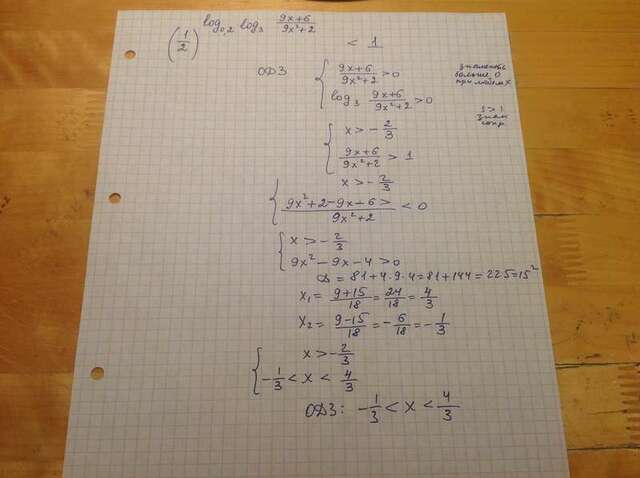 (1/2)^(log_0,2 log_3 (9x+6)/(9x²+2)) < 1
ОДЗ { (9x+6)/(9x²+2) > 0
log_3 (9x+6)/(9x²+2) > 0
знаменатель
больше 0
при любом x
3 > 1
знак
сохр.
{ x > -2/3
(9x+6)/(9x²+2) > 1
{ x > -2/3
(9x²+2-9x+6)/(9x²+2) < 0
{ x > -2/3
9x²-9x-4 > 0
D = 81+4·9·4 = 81+144 = 225 = 15²
x₁ = (9+15)/18 = 24/18 = 4/3
x₂ = (9-15)/18 = -6/18 = -1/3
{ x > -2/3
-1/3 < x < 4/3
ОДЗ: -1/3 < x < 4/3